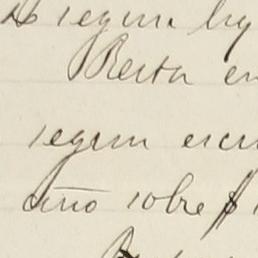 segun ley
Resta en
segun escri
año sobre $